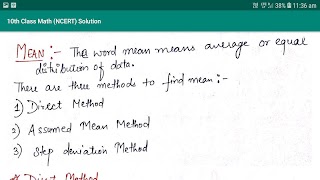 38% 11:36 am
10th Class Math (NCERT) Solution
MEAN :- The word mean means average or equal
distribution of data.
There are three methods to find mean :-
1) Direct Method
2) Assumed Mean Method
3) Step deviation Method
Direct Method